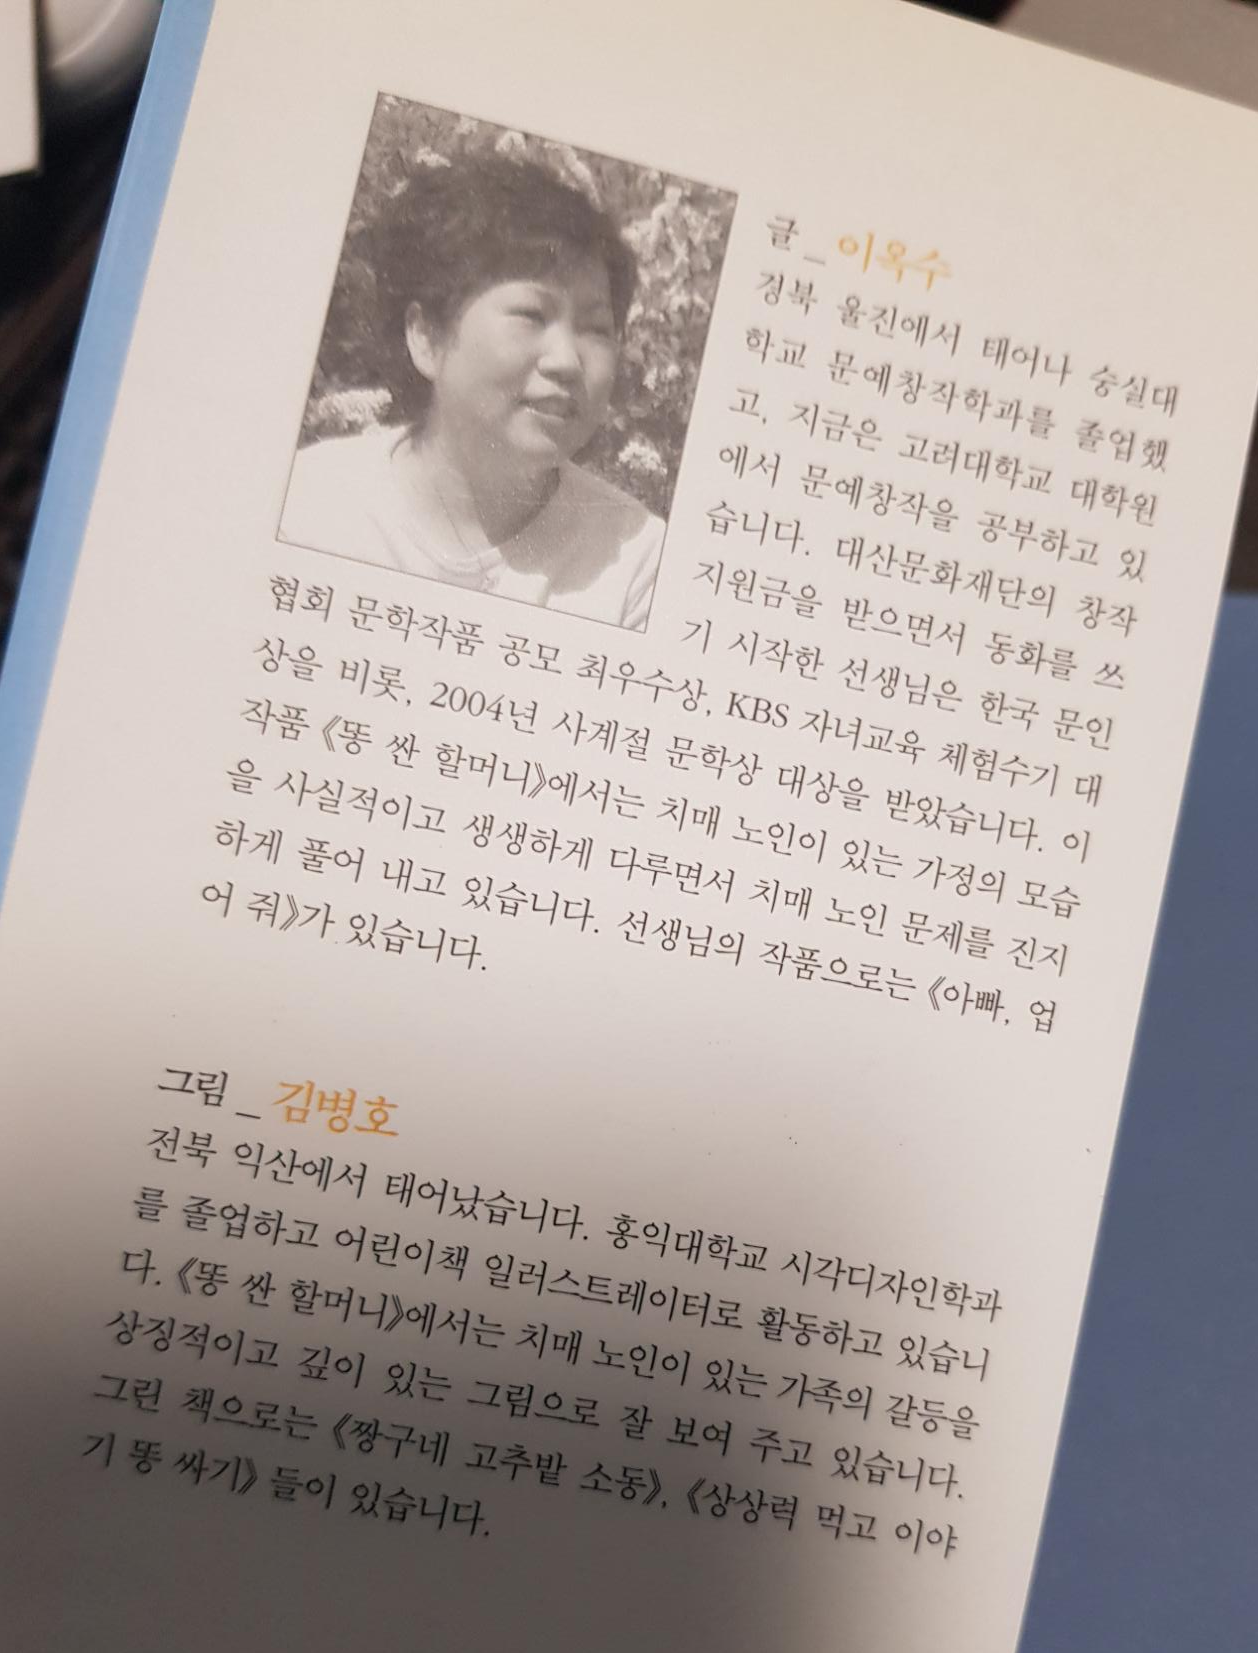 글_이옥수
경북 울진에서 태어나 숭실대
학교 문예창작학과를 졸업했
고, 지금은 고려대학교 대학원
에서 문예창작을 공부하고 있
습니다. 대산문화재단의 창작
지원금을 받으면서 동화를 쓰
기 시작한 선생님은 한국 문인
협회 문학작품 공모 최우수상, KBS 자녀교육 체험수기 대
상을 비롯, 2004년 사계절 문학상 대상을 받았습니다. 이
작품 《똥 싼 할머니》에서는 치매 노인이 있는 가정의 모습
을 사실적이고 생생하게 다루면서 치매 노인 문제를 진지
하게 풀어 내고 있습니다. 선생님의 작품으로는 《아빠, 업
어 줘》가 있습니다.
그림_김병호
전북 익산에서 태어났습니다. 홍익대학교 시각디자인학과
를 졸업하고 어린이책 일러스트레이터로 활동하고 있습니
다. 《똥 싼 할머니》에서는 치매 노인이 있는 가족의 갈등을
상징적이고 깊이 있는 그림으로 잘 보여 주고 있습니다.
그린 책으로는 《짱구네 고추밭 소동》, 《상상력 먹고 이야
기 똥 싸기》 들이 있습니다.